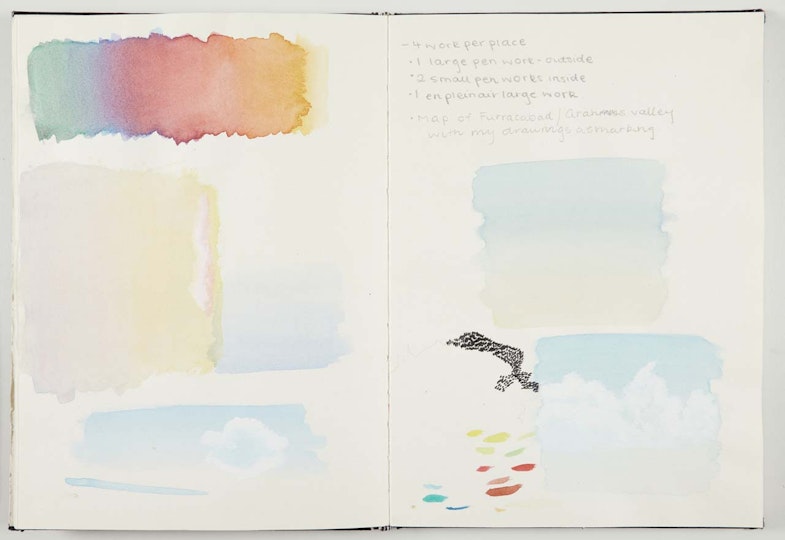 - 4 work per place
· 1 large pen work - outside
· 2 small pen works inside
· 1 en plein air large work
· Map of / valley
with my drawings as marking